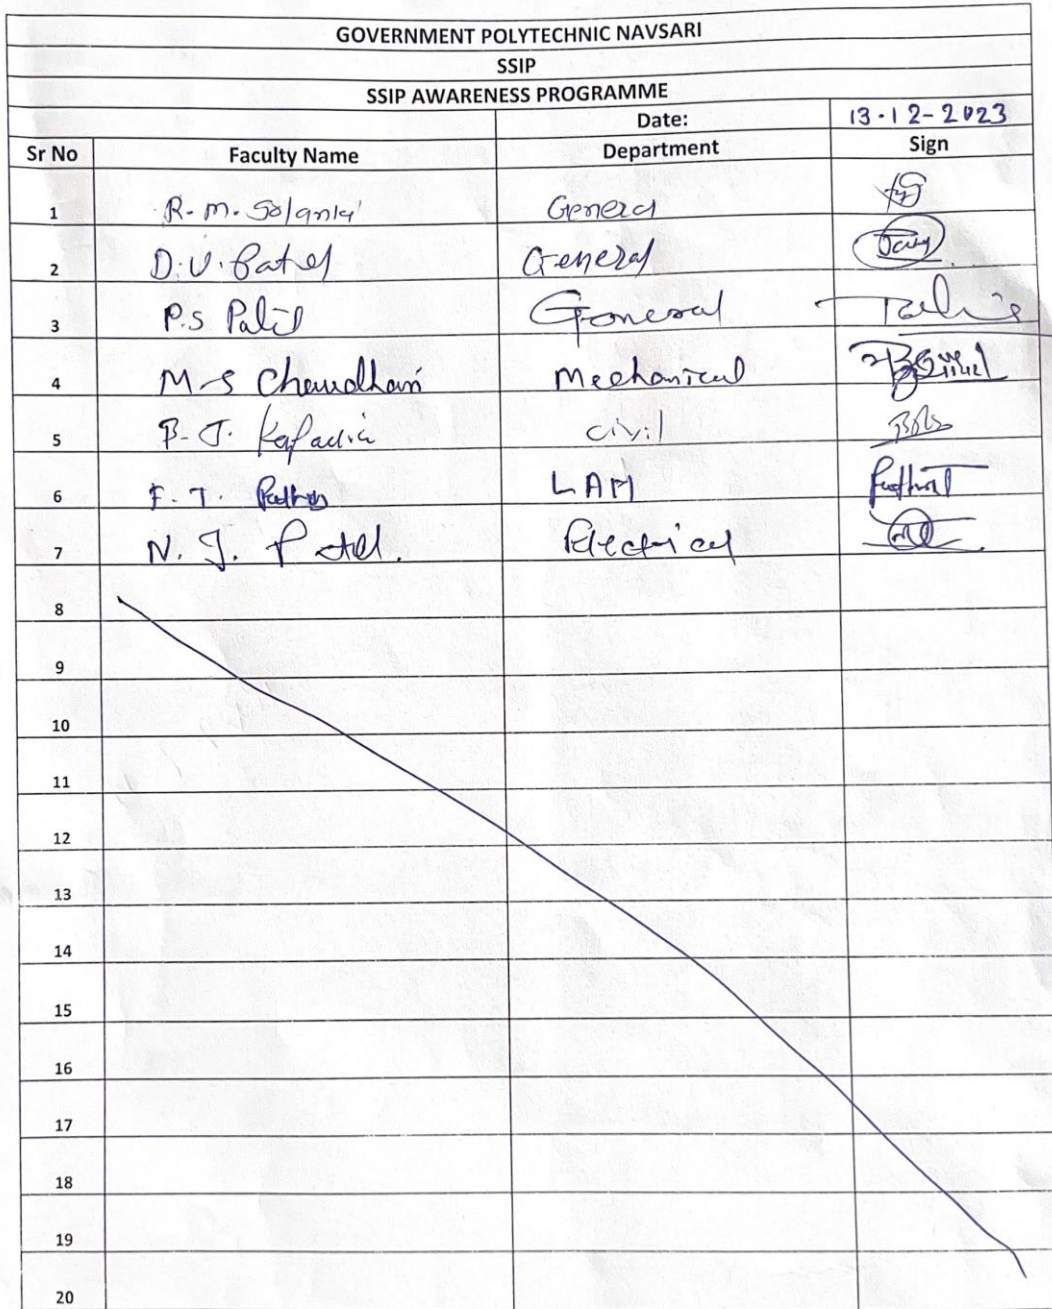 GOVERNMENT POLYTECHNIC NAVSARI
SSIP
SSIP AWARENESS PROGRAMME
Date: 13-12-2023
Sr No Faculty Name Department Sign
1 R. M. Solanki General
2 D. V. Patel General
3 P.S Patil General
4 M-S Chaudhari Mechanical
5 B. J. Kapadia civil
6 F. T. LAM
7 N. J. Patel. Electrical
8
9
10
11
12
13
14
15
16
17
18
19
20